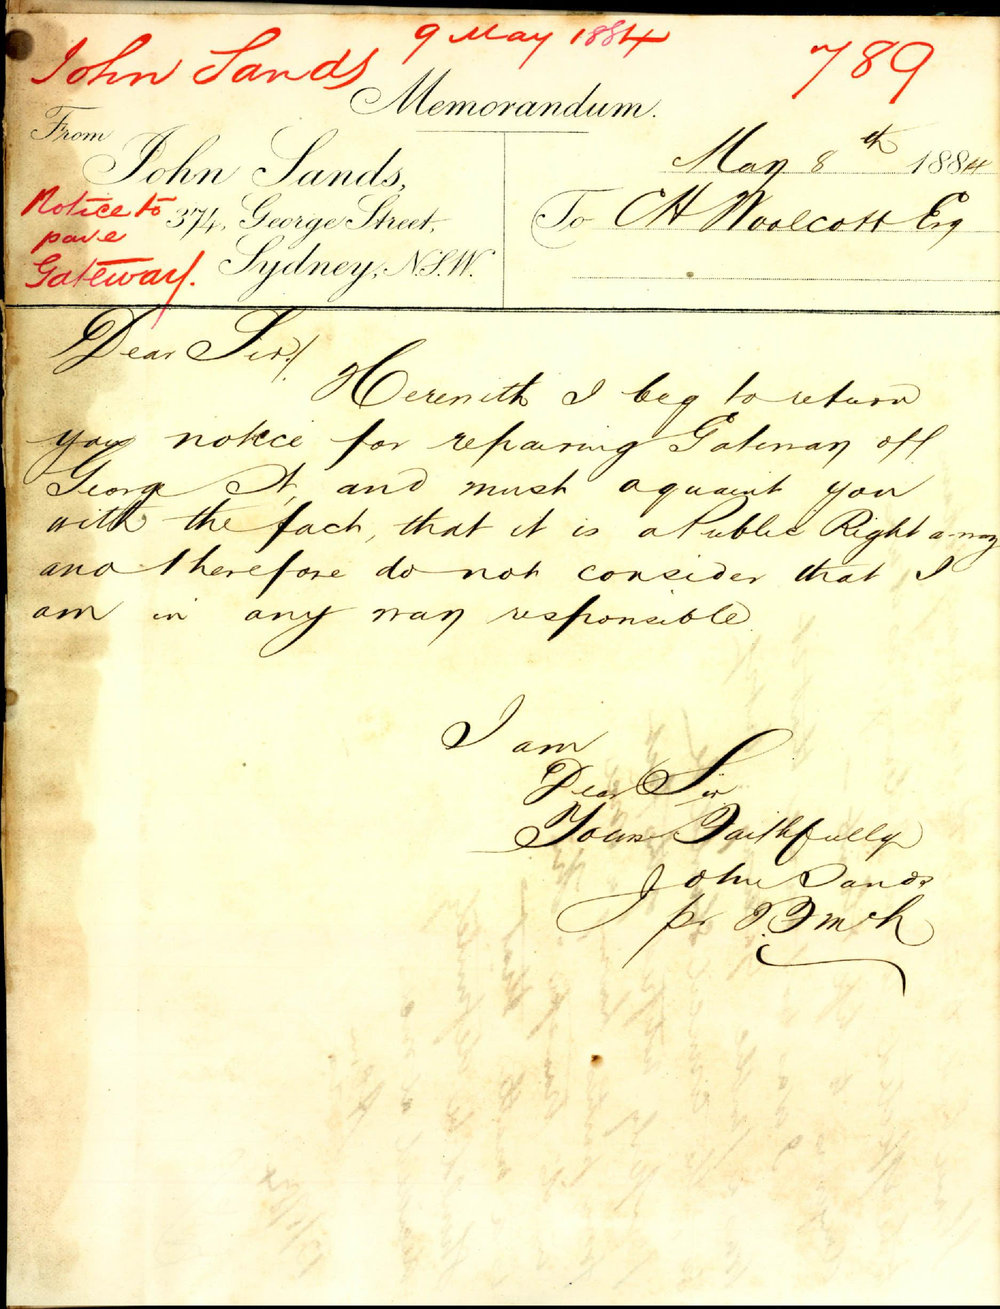 John Sands 9 May 1884 789
Memorandum.
From
John Sands,
374, George Street,
Sydney, N.S.W.
Notice to
pave
Gateway.
May 8th 1884
To CH Woolcott Esq
Dear Sir/
Herewith I beg to return
your notice for repairing Gateway off
George St, and must aquaint you
with the fact, that it is a Public Right a-way
and therefore do not consider that I
am in any way responsible
I am
Dear Sir
Yours Faithfully
John Sands
pr